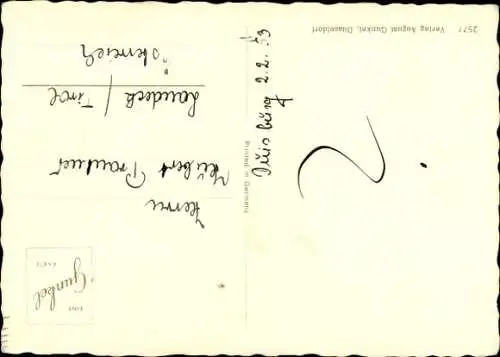 Duisburg 2.2.53
2.
2577 Verlag August Gunkel, Düsseldorf
Printed in Germany
Gunkel
Herrn
Hubert Prantner
Landeck / Tirol
Österreich